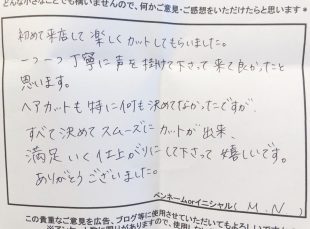 どんな小さなことでも構いませんので、何かご意見・ご感想をいただけたらと思います*
初めて来店して楽しくカットしてもらいました。
一つ一つ丁寧に声を掛けて下さって来て良かったと
思います。
ヘアカットも特に何も決めてなかったですが、
すべて決めてスムーズにカットが出来、
満足いく仕上がりにして下さって嬉しいです。
ありがとうございました。
ペンネームorイニシャル( M.N )
この貴重なご意見を広告、ブログ等に使用させていただいてもよろしいですか